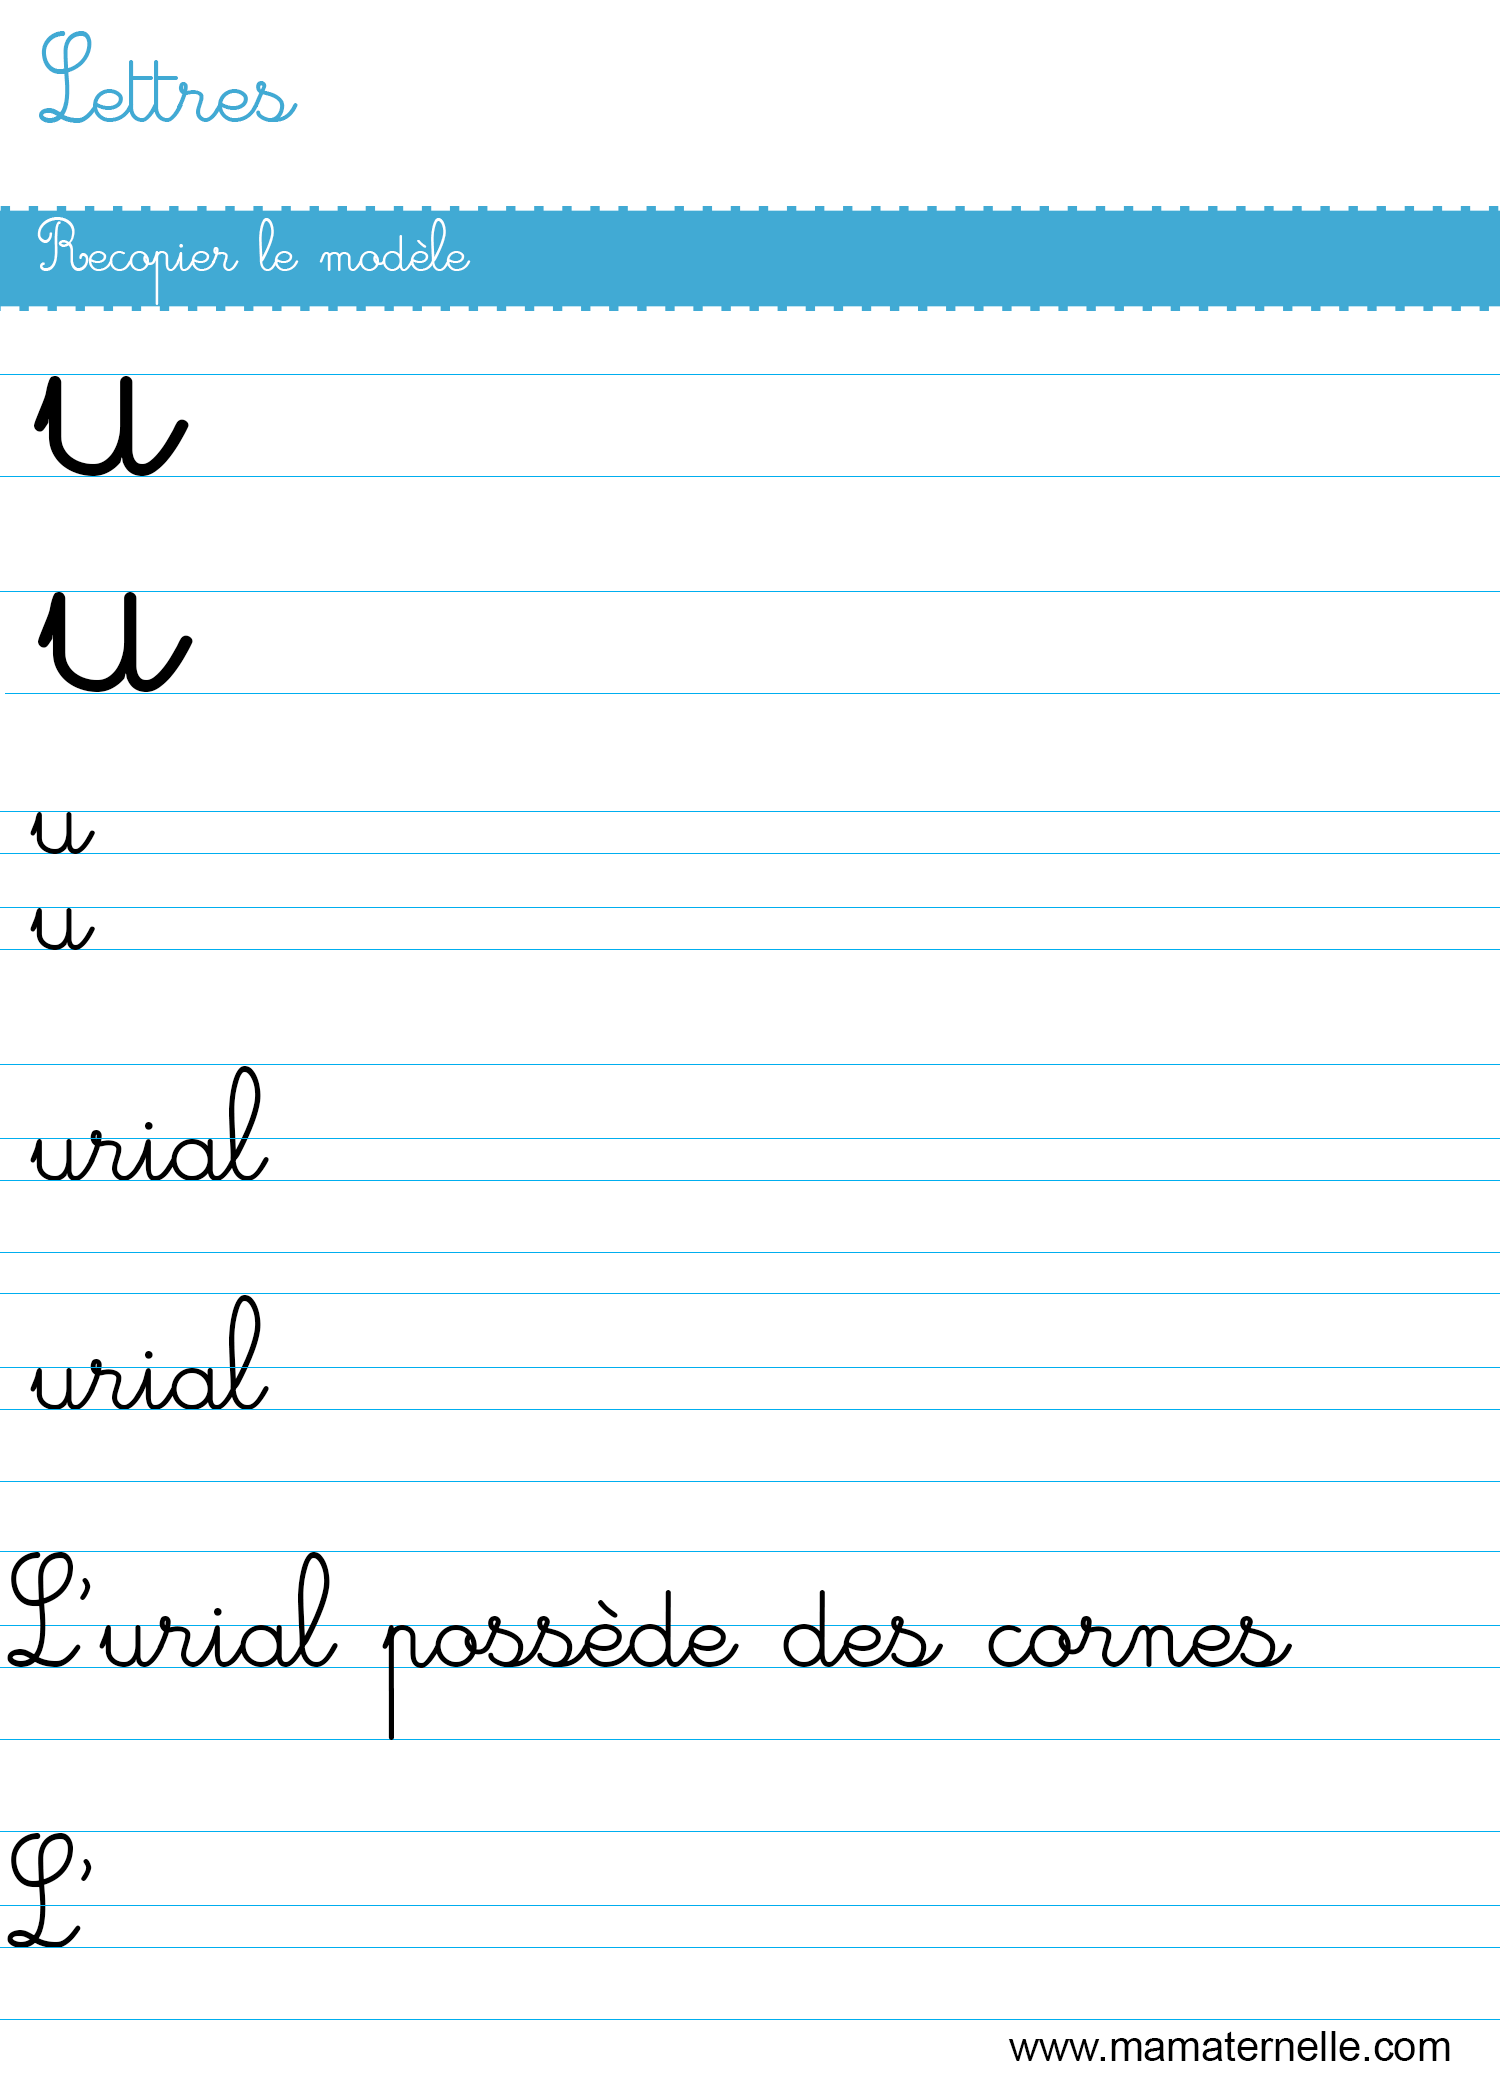 Lettres
Recopier le modèle
u
u
u
u
urial
urial
L'urial possède des cornes
L'
www.mamaternelle.com